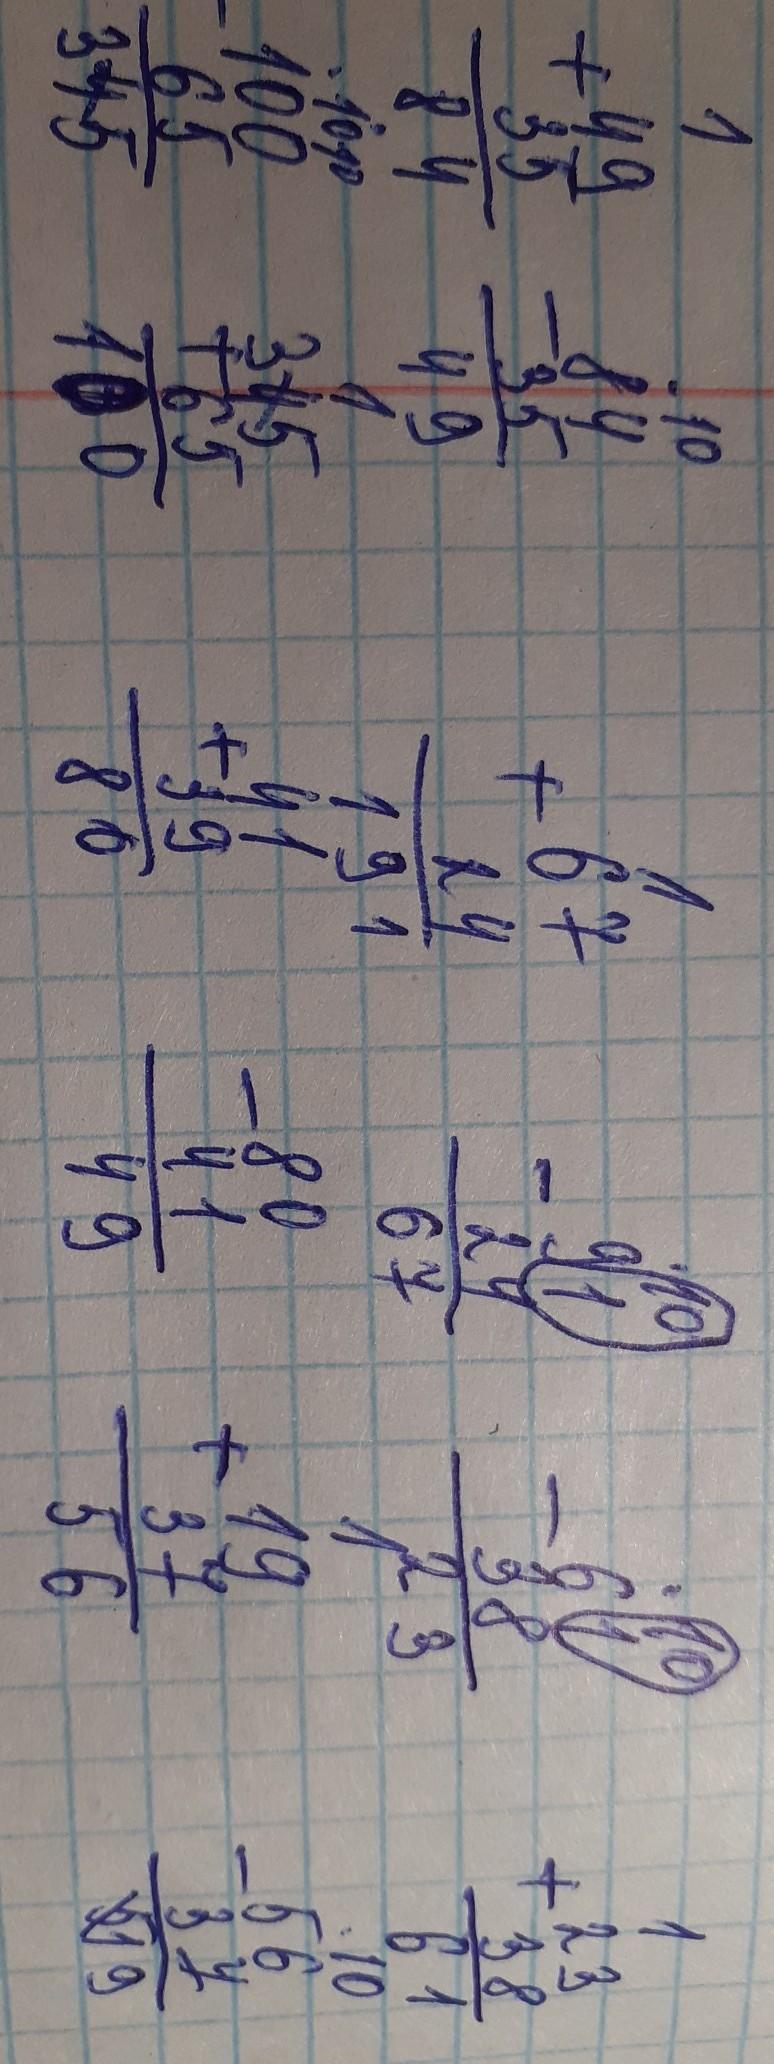 1 ·10 1 ·10 ·10 1
+ 49 - 84 + 67 - 91 - 61 + 23
35 35 24 24 38 38
84 49 91 67 23 61
·10 10 1 1 ·10
- 100 35 + 41 - 80 + 19 - 56
65 + 65 39 41 37 37
35 100 80 49 56 19